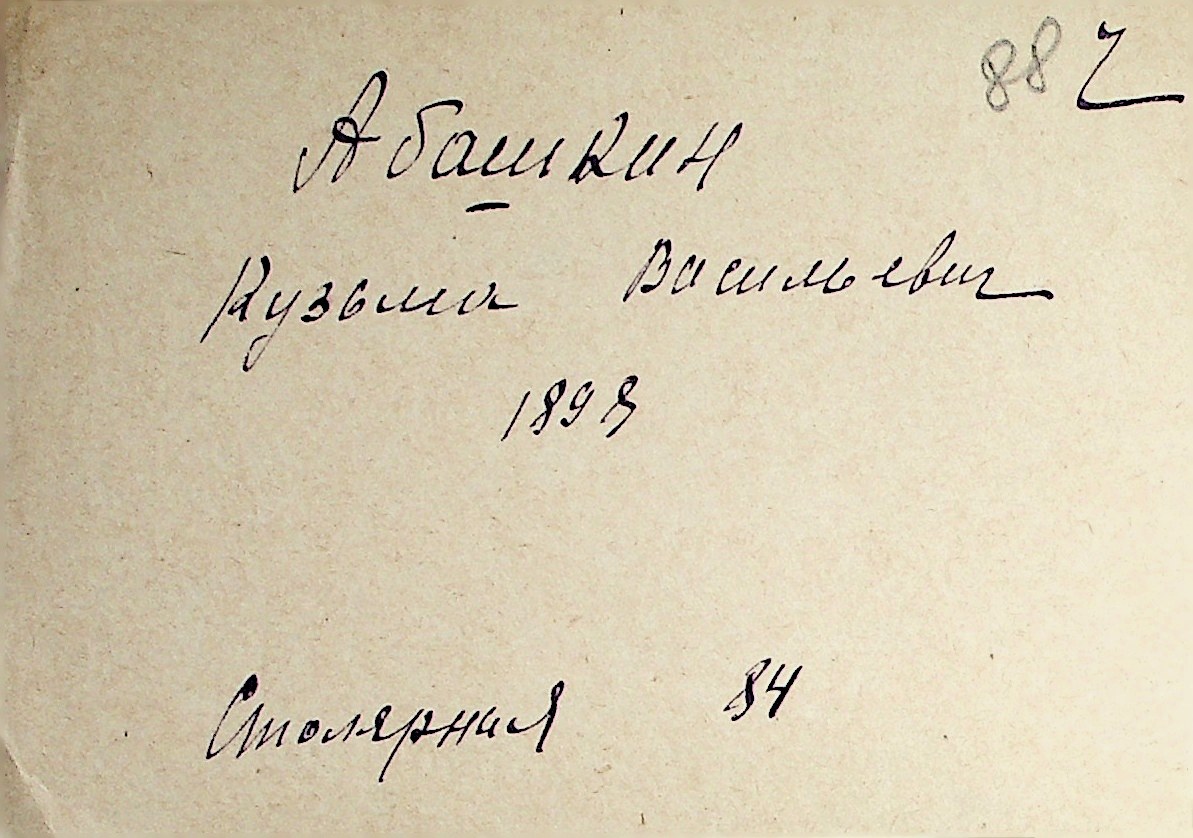 88 ч
Абашкин
Кузьма Васильевич
1898
Столярная 84